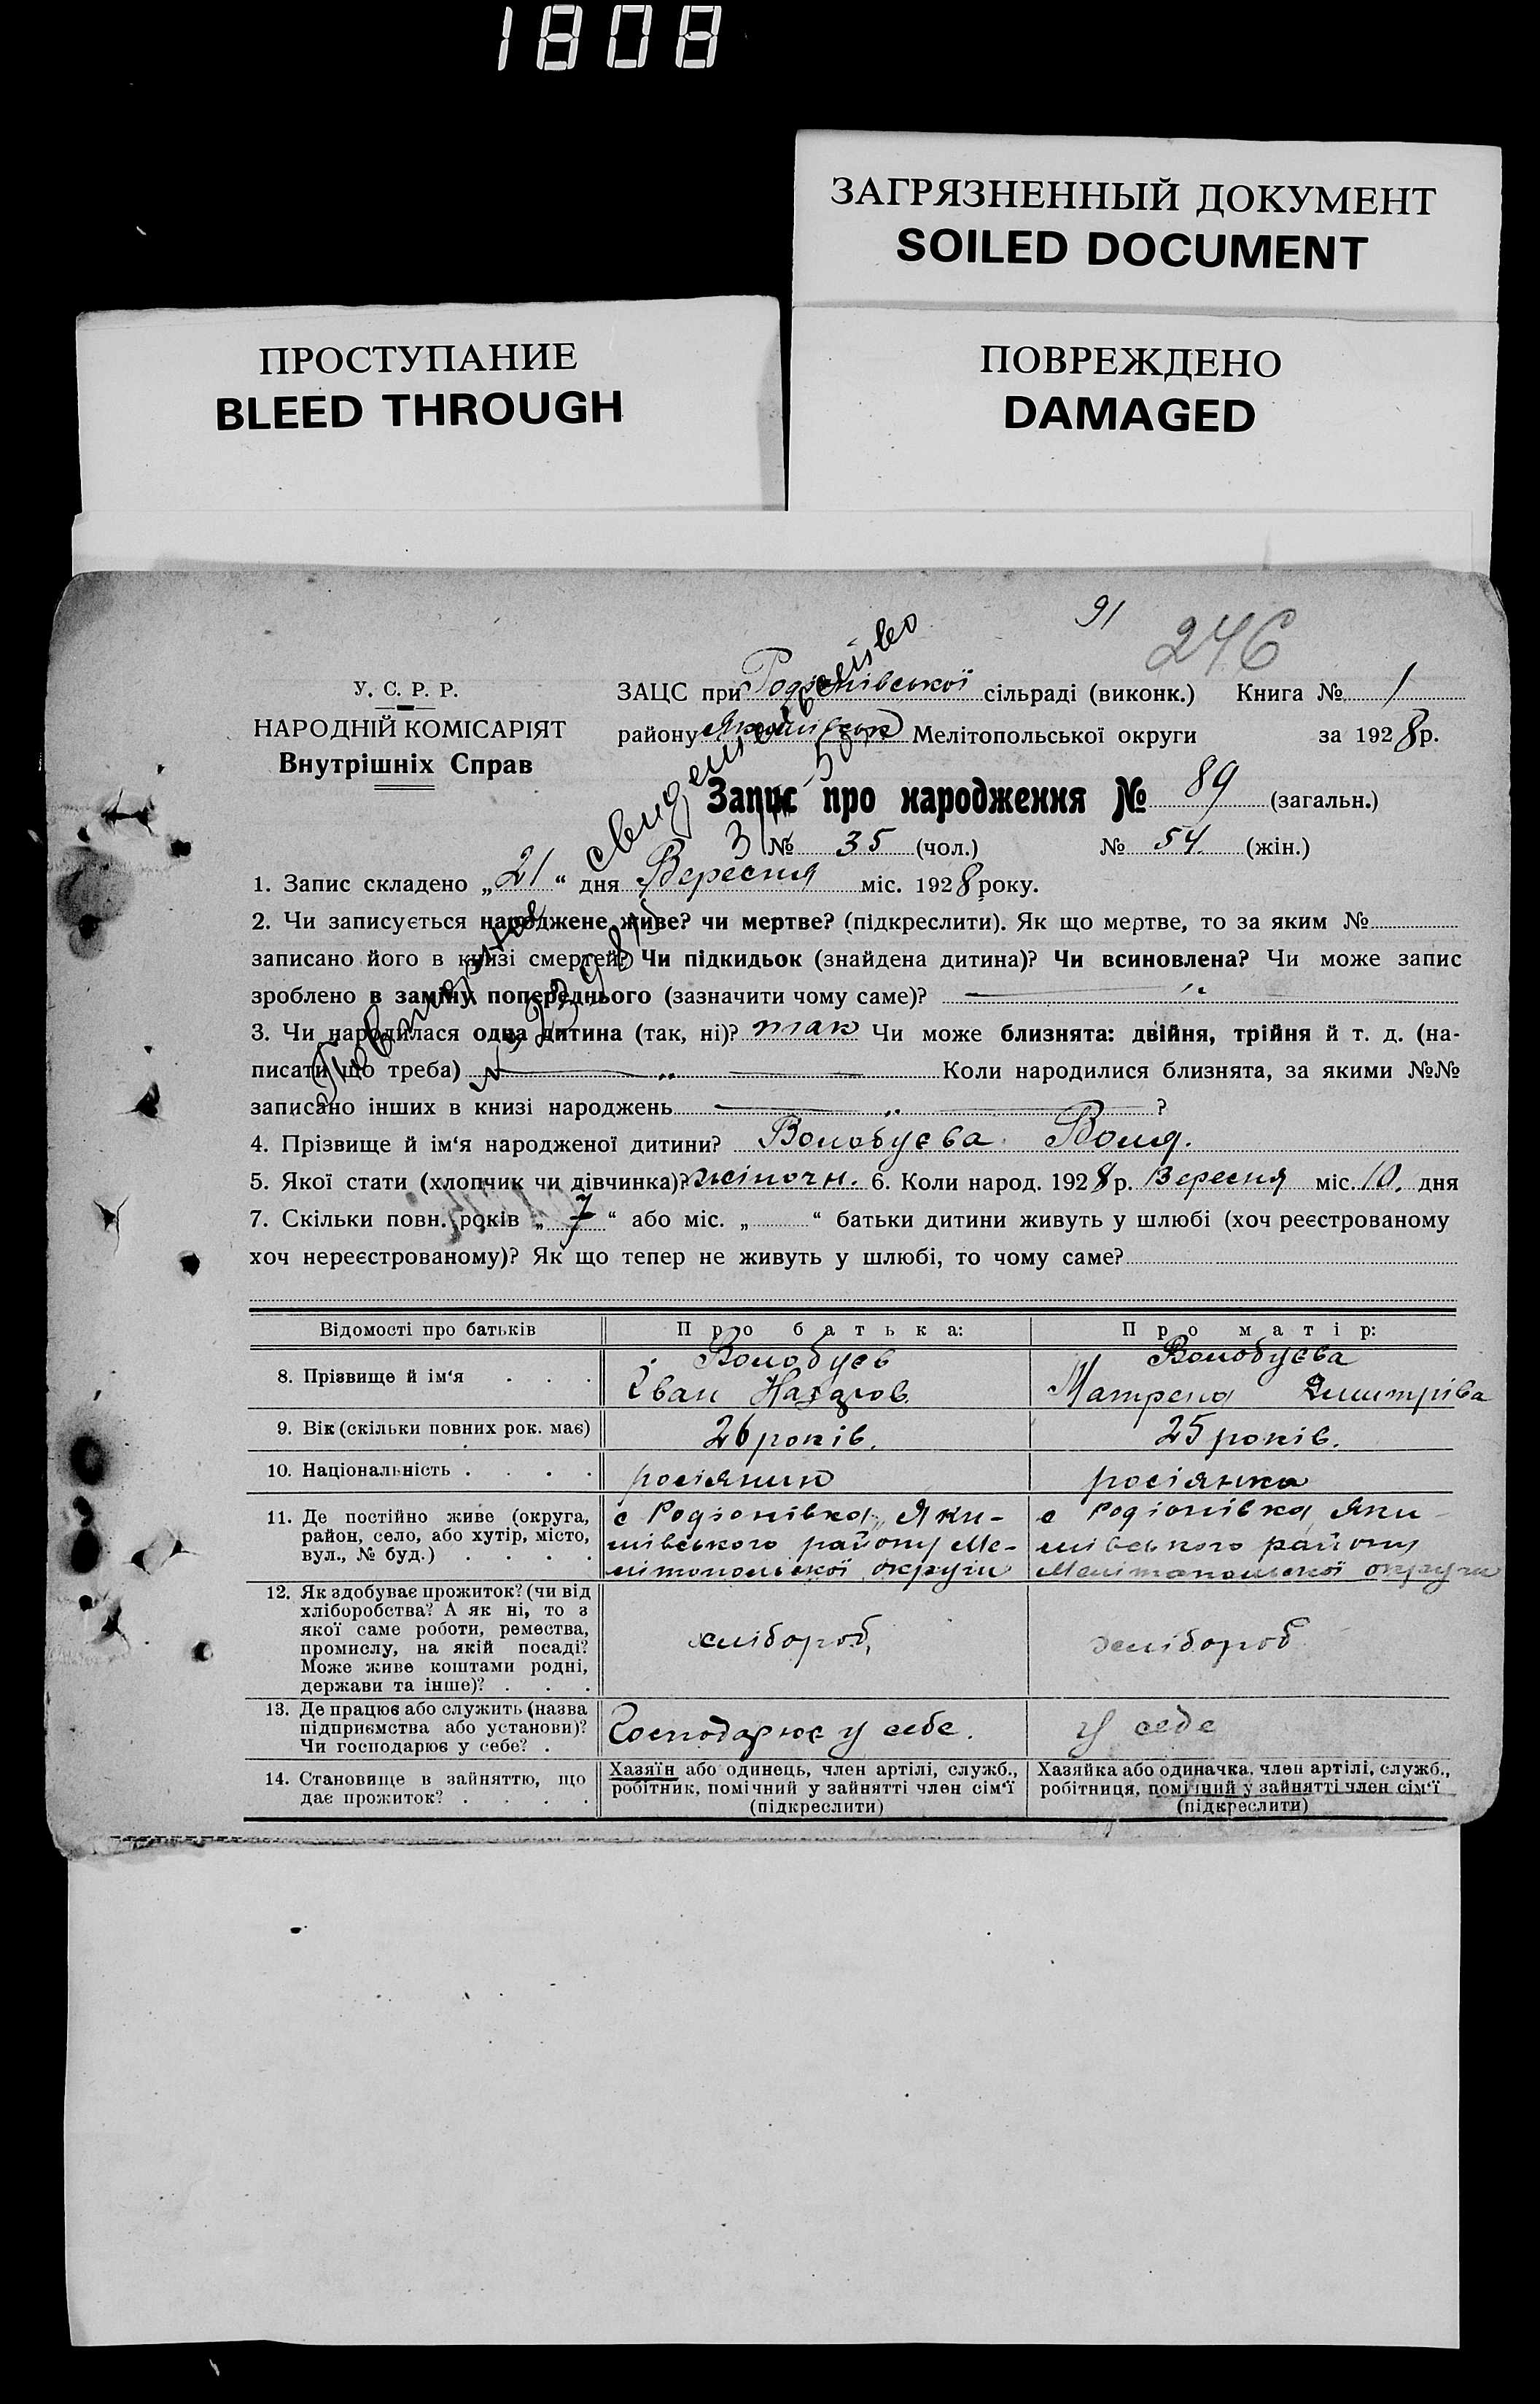 1808
ЗАГРЯЗНЕННЫЙ ДОКУМЕНТ
SOILED DOCUMENT
ПРОСТУПАНИЕ
BLEED THROUGH
ПОВРЕЖДЕНО
DAMAGED
91
246
У. С. Р. Р.
НАРОДНІЙ КОМІСАРІЯТ
Внутрішніх Справ
ЗАЦС при Родіонівської сільраді (виконк.) Книга № 1
району Мелітопольської округи за 1928 р.
Запис про народження № 89 (загальн.)
№ 35 (чол.) № 54 (жін.)
Повторное свидетельство
1. Запис складено „21“ дня Вересня міс. 1928 року.
2. Чи записується народжене живе? чи мертве? (підкреслити). Як що мертве, то за яким №
записано його в книзі смертей? Чи підкидьок (знайдена дитина)? Чи всиновлена? Чи може запис
зроблено в заміну попереднього (зазначити чому саме)? — „
3. Чи народилася одна дитина (так, ні)? так Чи може близнята: двійня, трійня й т. д. (на-
писати що треба) — „ — Коли народилися близнята, за якими №№
записано інших в книзі народжень — „ — ?
4. Прізвище й ім‘я народженої дитини? Волобуєва Воля.
5. Якої стати (хлопчик чи дівчинка)? жіночн. 6. Коли народ. 1928 р. Вересня міс. 10. дня
7. Скільки повн. років „7“ або міс. „ “ батьки дитини живуть у шлюбі (хоч реєстрованому
хоч нереєстрованому)? Як що тепер не живуть у шлюбі, то чому саме?
Відомості про батьків Про батька: Про матір:
8. Прізвище й ім‘я . . .
Волобуєв
Іван Назаров.
Волобуєва
Матрена Дмитрівa
9. Вік (скільки повних рок. має) 26 років. 25 років.
10. Національність . . . . росіянин росіянка
11. Де постійно живе (округа,
район, село, або хутір, місто,
вул., № буд.) . . . .
с Родіонівка, Яки-
мівського району Ме-
літопольської округи
с Родіонівка Яки-
мівського району
Мелітопольської округи
12. Як здобуває прожиток? (чи від
хліборобства? А як ні, то з
якої саме роботи, ремества,
промислу, на якій посаді?
Може живе коштами родні,
держави та інше)? . . .
хлібороб, хлібороб
13. Де працює або служить (назва
підприємства або установи)?
Чи господарює у себе? .
Господарює у себе. У себе
14. Становище в зайняттю, що
дає прожиток? . . . .
Хазяїн або одинець, член артілі, служб.,
робітник, помічний у зайнятті член сім‘ї
(підкреслити)
Хазяйка або одиначка, член артілі, служб.,
робітниця, помічний у зайнятті член сім‘ї
(підкреслити)